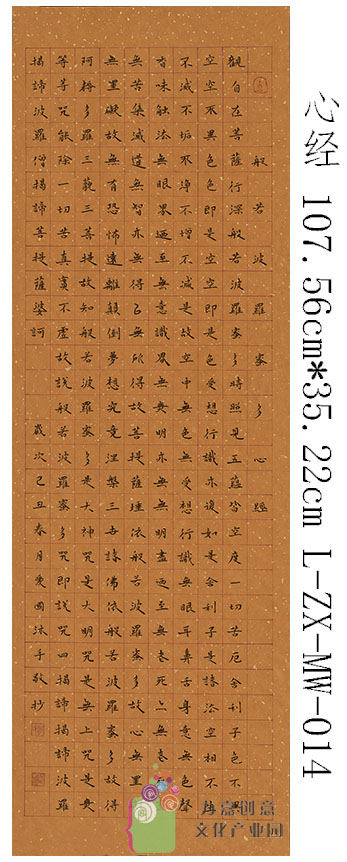 般若波羅蜜多心經
觀自在菩薩行深般若波羅蜜多時照見五蘊皆空度一切苦厄舍利子色不異
空空不異色色即是空空即是色受想行識亦復如是舍利子是諸法空相不生
不滅不垢不淨不增不減是故空中無色無受想行識無眼耳鼻舌身意無色聲
香味触法無眼界廼至無意識界無無明亦無無明盡廼至無老死亦無老死盡
無苦集滅道無智亦無得以無所得故菩提薩埵依般若波羅蜜多故心無罣礙
無罣礙故無有恐怖遠離顛倒夢想究竟涅槃三世諸佛依般若波羅蜜多故得
阿耨多羅三藐三菩提故知般若波羅蜜多是大神咒是大明咒是無上咒是無
等等咒能除一切苦真實不虛故說般若波羅蜜多咒即說咒曰揭諦揭諦波羅
揭諦波羅僧揭諦菩提薩婆訶
歲次己丑春月愛國沐手敬抄
心经 107.56cm*35.22cm L-ZX-MW-014
创意
文化产业园